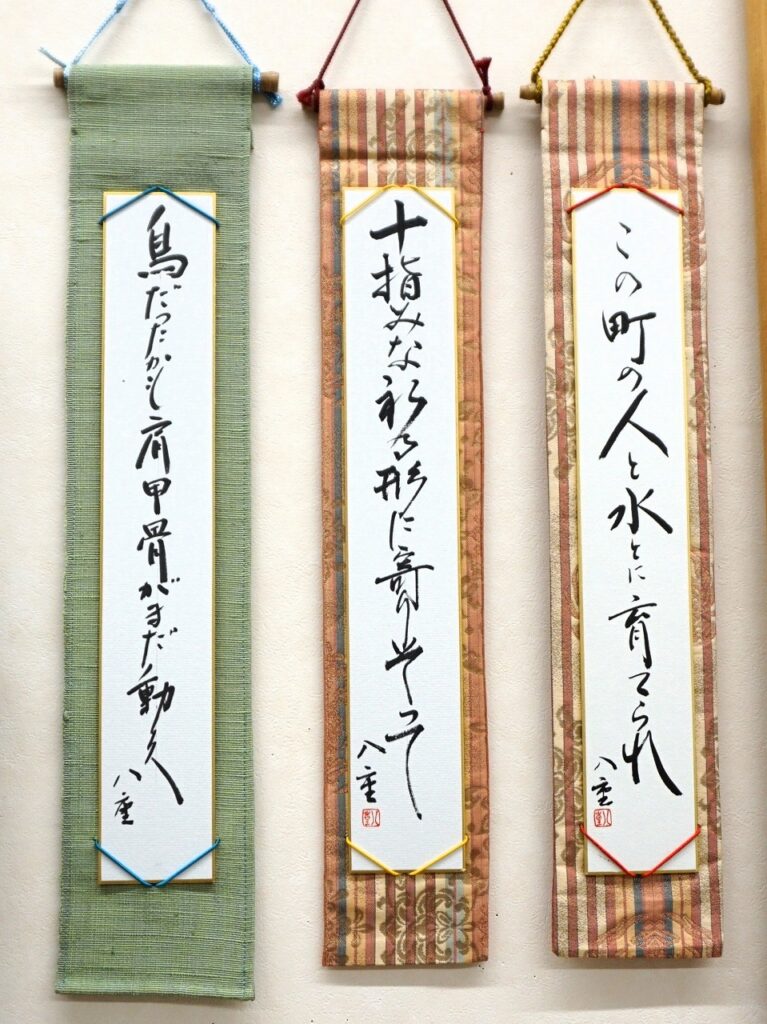 この町の人と水とに育てられ
八重
十指みな祈る形に寄りそって
八重
鳥だったかも肩甲骨がまだ動く
八重